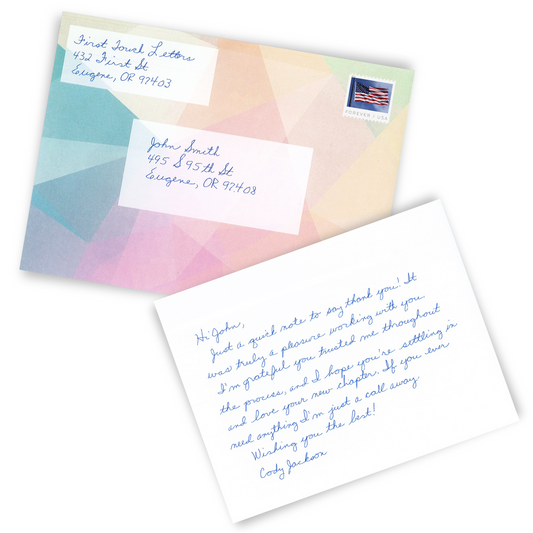 First Touch Letters
432 First St
Eugene, OR 97403
FOREVER / USA
John Smith
495 S 95th St
Eugene, OR 97408
Hi John,
Just a quick note to say thank you! It
was truly a pleasure working with you
I'm grateful you trusted me throughout
the process, and I hope you're settling in
and love your new chapter. If you ever
need anything I'm just a call away
Wishing you the best!
Cody Jackson